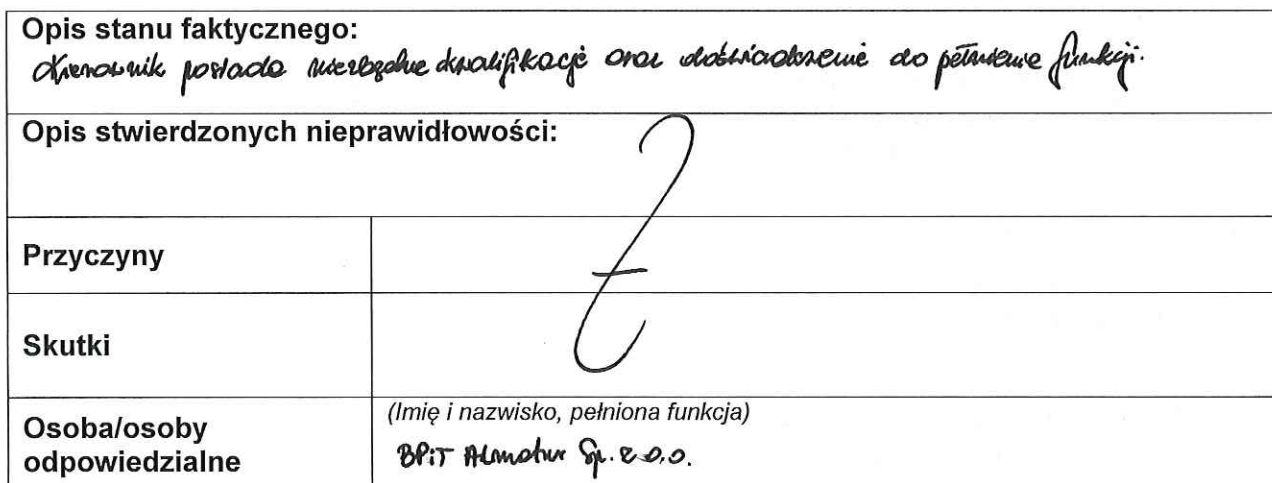 Opis stanu faktycznego:
Kierownik posiada niezbędne kwalifikacje oraz doświadczenie do pełnienia funkcji.
Opis stwierdzonych nieprawidłowości:
Przyczyny
Skutki
Osoba/osoby
odpowiedzialne
(Imię i nazwisko, pełniona funkcja)
BPiT Almatur Sp. z o.o.